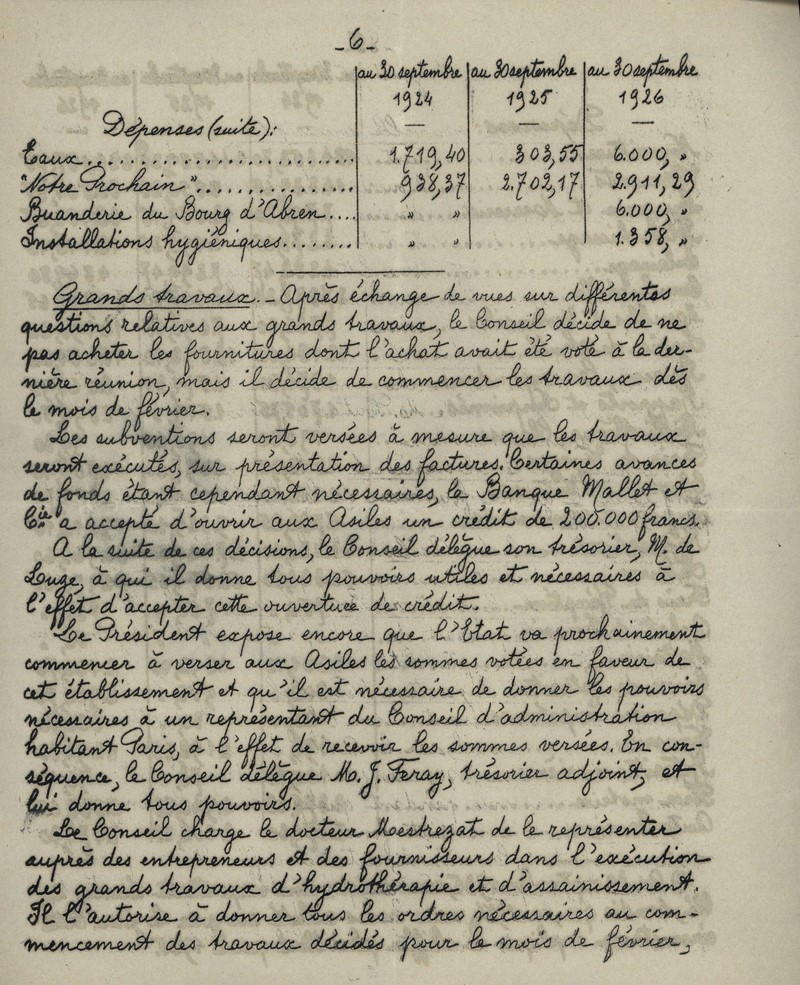 _6_
au 30 septembre au 30 septembre au 30 septembre
1924 1925 1926
Dépenses (suite):
Eaux........................... 1.719,40 303,55 6.000, "
"Notre Prochain"................ 938,37 2.702,17 2.911,29
Buanderie du Bourg d'Abren.... " " 6.000, "
Installations hygiéniques........ " " 1.358, "
Grands travaux. - Après échange de vues sur différentes
questions relatives aux grands travaux, le Conseil décide de ne
pas acheter les fournitures dont l'achat avait été voté à la der-
nière réunion, mais il décide de commencer les travaux dès
le mois de février.
Les subventions seront versées à mesure que les travaux
seront exécutés, sur présentation des factures. Certaines avances
de fonds étant cependant nécessaires, la Banque Mallet et
Cie a accepté d'ouvrir aux Asiles un crédit de 200.000 francs.
A la suite de ces décisions, le Conseil délègue son trésorier, M. de
Luze, à qui il donne tous pouvoirs utiles et nécessaires à
l'effet d'accepter cette ouverture de crédit.
Le Président expose encore que l'Etat va prochainement
commencer à verser aux Asiles les sommes votées en faveur de
cet établissement et qu'il est nécessaire de donner les pouvoirs
nécessaires à un représentant du Conseil d'administration
habitant Paris, à l'effet de recevoir les sommes versées. En con-
séquence, le Conseil délègue M. J. Feray, trésorier adjoint, et
lui donne tous pouvoirs.
Le Conseil charge le docteur Mestrezat de le représenter
auprès des entrepreneurs et des fournisseurs dans l'exécution
des grands travaux d'hydrothérapie et d'assainissement.
Il l'autorise à donner tous les ordres nécessaires au com-
mencement des travaux décidés pour le mois de février,